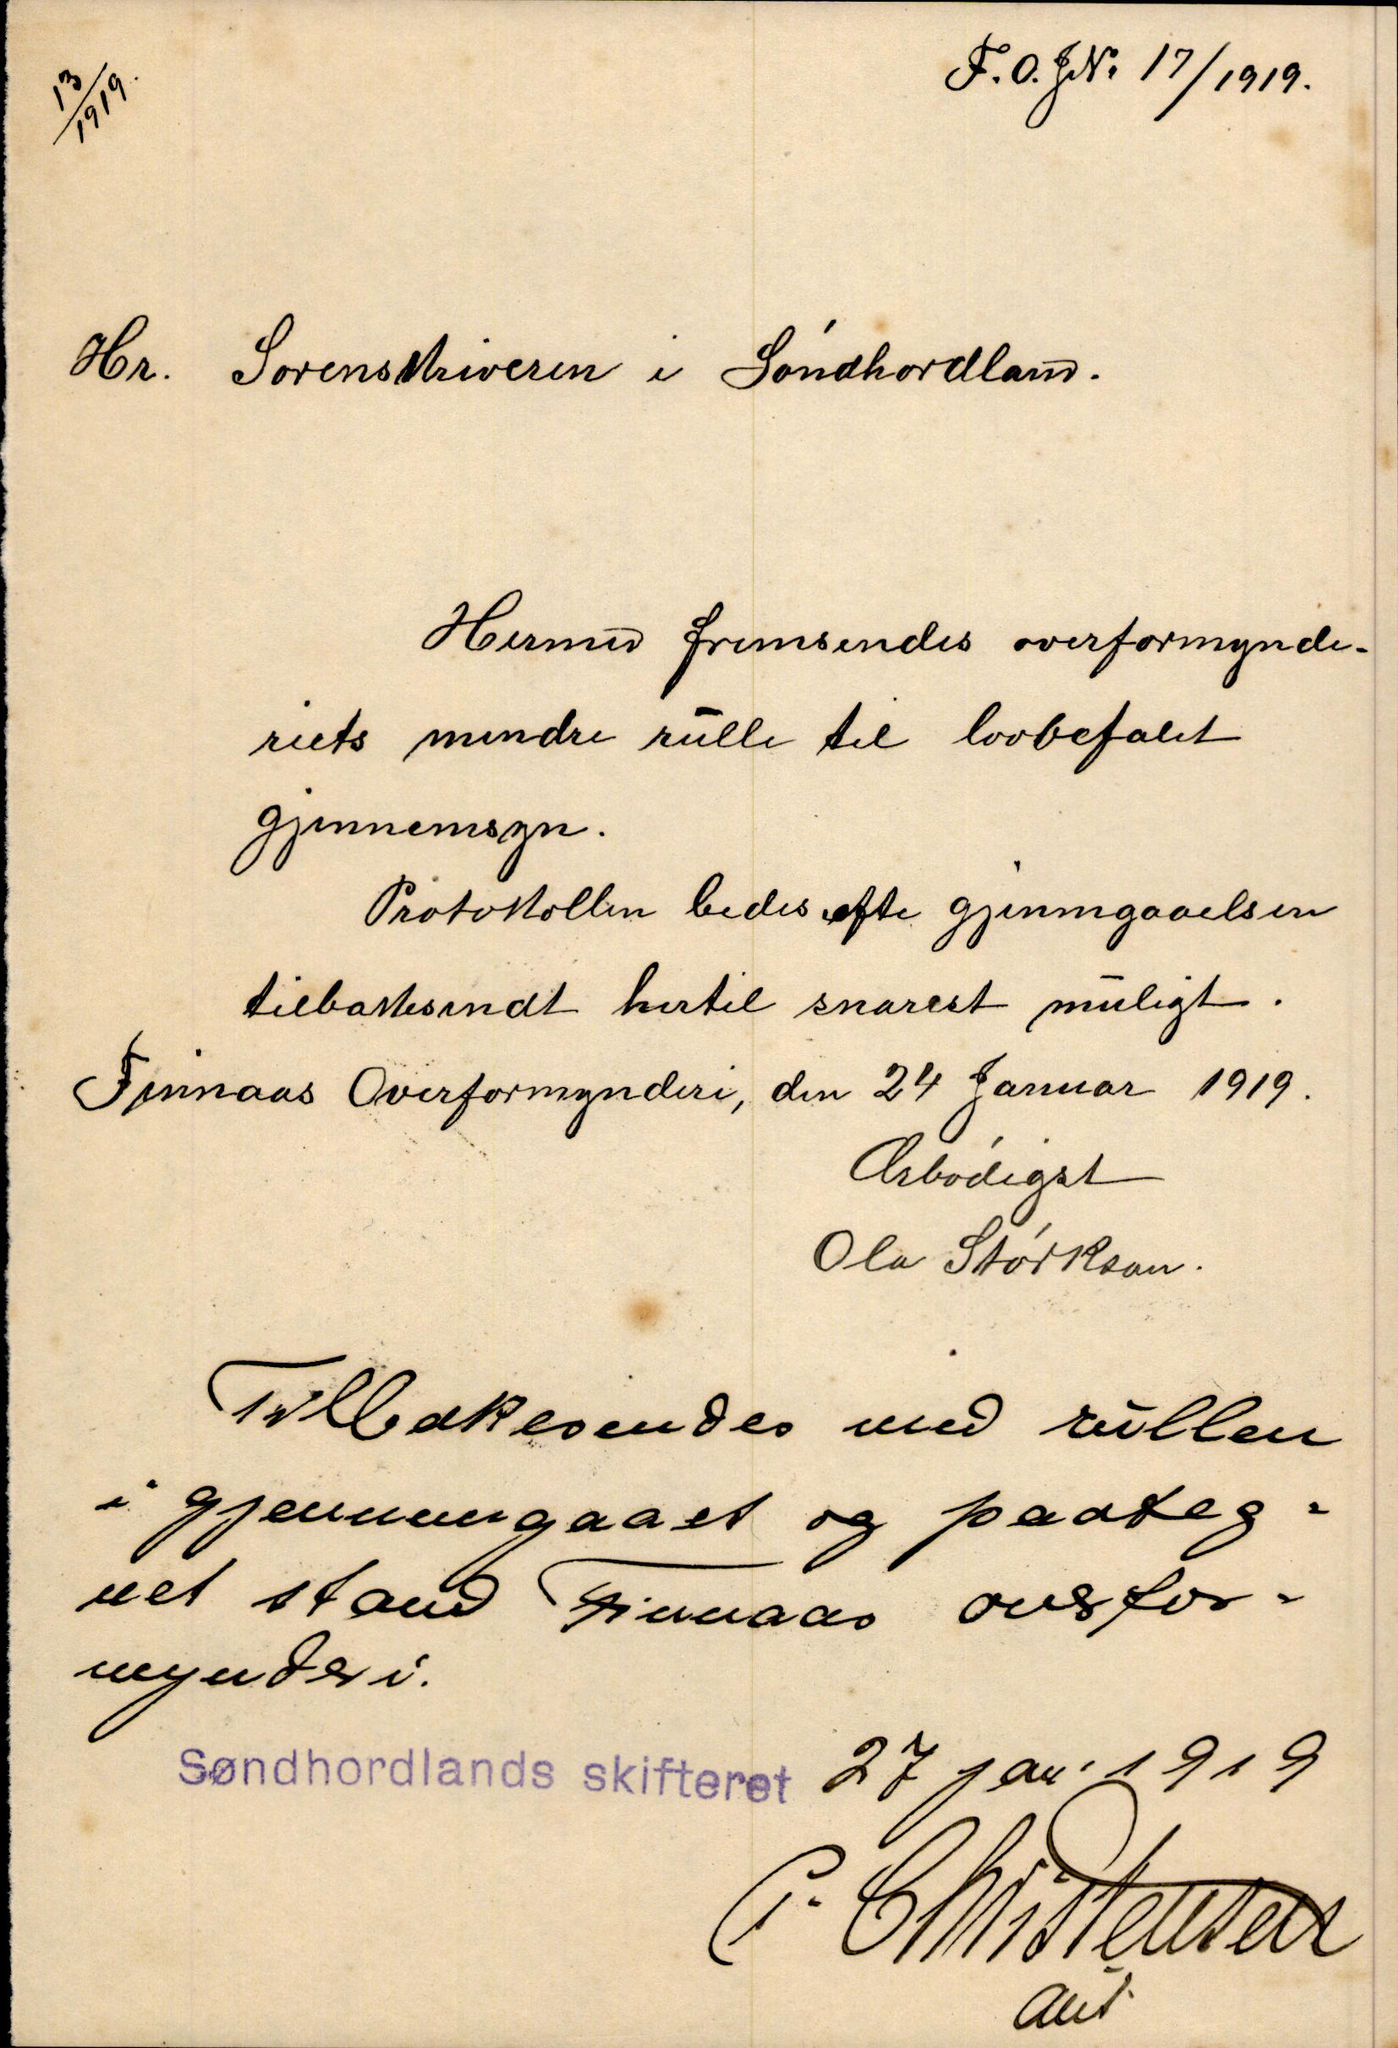 13/1919.
F.O.J.Nº 17/1919.
Hr. Sorenskriveren i Söndhordland.
Hermed fremsendes overformynde-
riets mindre rulle til lovbefalet
gjennemsyn.
Protokollen bedes efte gjenngaaelsen
tilbakesendt hertil snarest muligt.
Finnaas Overformynderi, den 24 Januar 1919.
Ærbödigst
Ola Störkson.
Tilbakesendes med rullen
i gjennemgaaet og paateg-
net stand Finnaas overfor-
mynderi.
Søndhordlands skifteret 27 jan. 1919
C. Christensen
aut